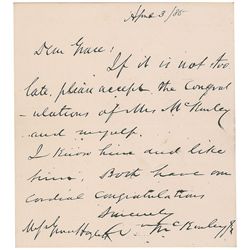 April 3/88
Dear Grace:
If it is not too
late, please accept the congrat
-ulations of Mrs McKinley
and myself.
I know him and like
him. Both have our
cordial congratulations
Sincerely
Wm McKinley Jr
Miss Grace